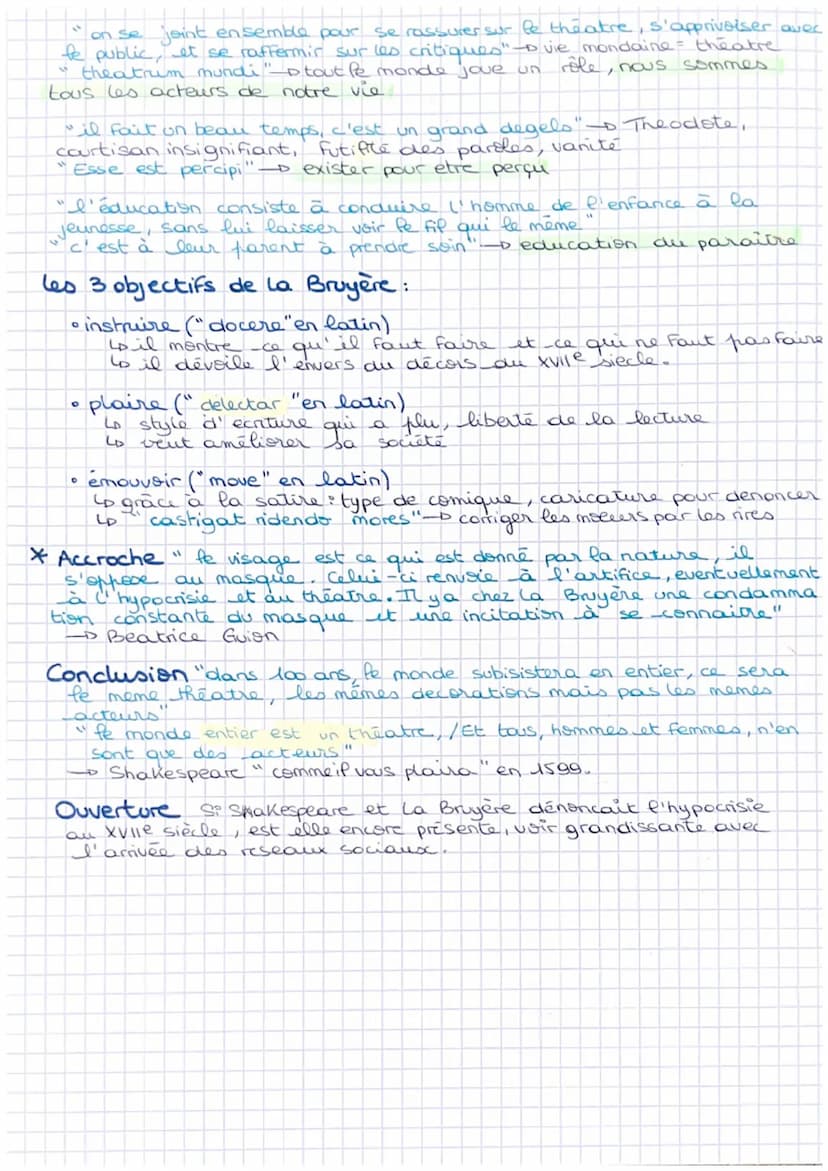 " on se joint ensemble pour se rassurer sur le théatre, s'apprivoiser avec
le public, et se raffermir sur les critiques" → vie mondaine = théatre
" theatrum mundi" → tout le monde joue un rôle, nous sommes
tous les acteurs de notre vie
" il fait un beau temps, c'est un grand degels" → Theodote,
courtisan insignifiant, futilité des paroles, vanité
" Esse est percipi" → exister pour etre perçu
" l'éducation consiste à conduire l'homme de l'enfance à la
jeunesse, sans lui laisser voir le fil qui le mème"
" c'est à leur parent à prendre soin" → education du paraître
Les 3 objectifs de La Bruyère :
• instruire ("docere" en latin)
↳ il montre ce qu'il faut faire et ce qui ne faut pas faire
↳ il dévoile l'envers du décors du XVIIe siecle.
• plaire (" delectar "en latin)
↳ style d'ecriture qui a plu, liberté de la lecture
↳ veut améliorer sa société
• émouvoir ("move" en latin)
↳ grâce à la satire : type de comique, caricature pour denoncer
↳ " castigat ridendo mores" → corriger les moeurs par les rires
* Accroche " le visage est ce qui est donné par la nature, il
s'oppose au masque. Celui-ci renvoie à l'artifice, eventuellement
à l'hypocrisie et au théatre. Il y a chez La Bruyère une condamna
tion constante du masque et une incitation à se connaitre"
→ Béatrice Guion
Conclusion "dans 100 ans, le monde subsistera en entier, ce sera
le meme théatre, les mêmes decorations mais pas les memes
acteurs"
" le monde entier est un théatre, / Et tous, hommes et femmes, n'en
sont que des acteurs"
→ Shakespeare " comme il vous plaira" en 1599.
Ouverture Si Shakespeare et La Bruyère dénoncait l'hypocrisie
au XVIIe siècle, est elle encore présente, voir grandissante avec
l'arrivée des reseaux sociaux.